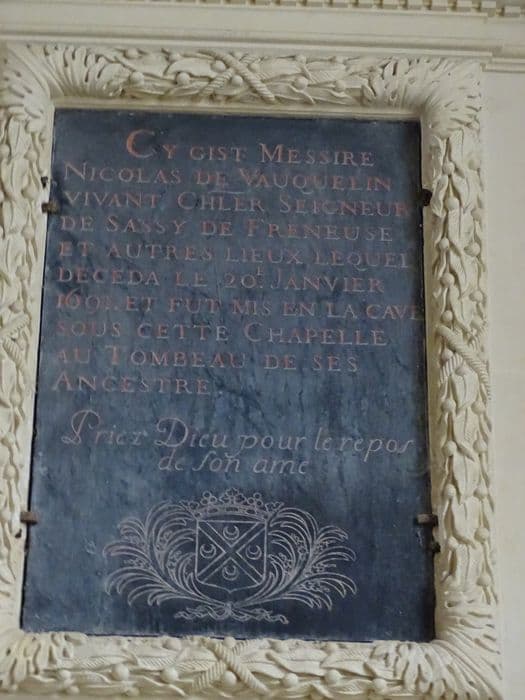 CY GIST MESSIRE
NICOLAS DE VAUQUELIN
VIVANT CHLER SEIGNEUR
DE SASSY DE FRENEUSE
ET AUTRES LIEUX LEQUEL
DECEDA LE 20E JANVIER
1691. ET FUT MIS EN LA CAVE
SOUS CETTE CHAPELLE
AU TOMBEAU DE SES
ANCESTRE
Priez Dieu pour le repos
de son ame